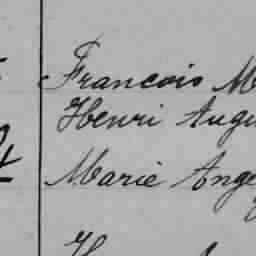 Francois M
Henri Augu
Marie Ange